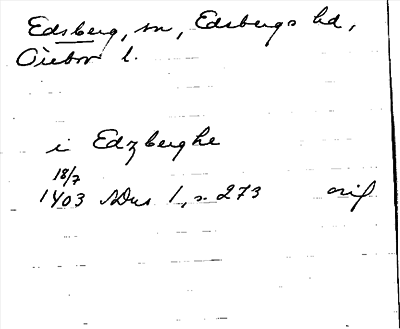 Edsberg, sn, Edsbergs hd,
Örebro l.
i Edzberghe
18/7
1403 SDns 1, s. 273 orig